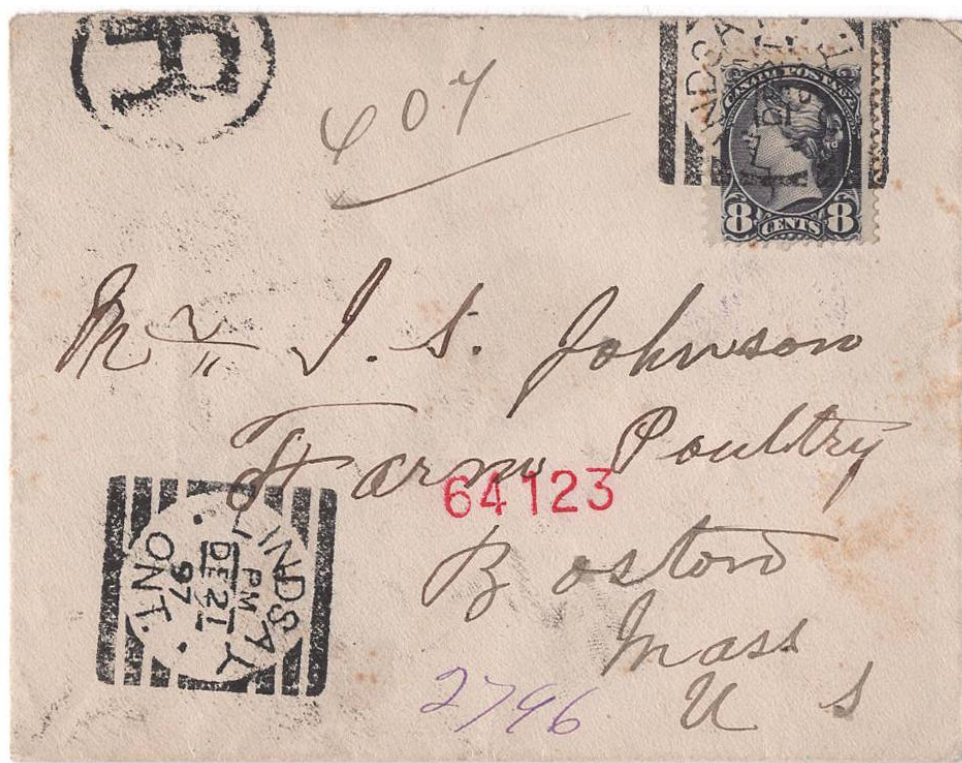 R
607
LINDSAY
CANADA POSTAGE
8 CENTS 8
Mr J. S. Johnson
Farm Poultry
64123
Boston
Mass
U S
2796
LINDSAY
1 PM
DE 21
97
ONT.